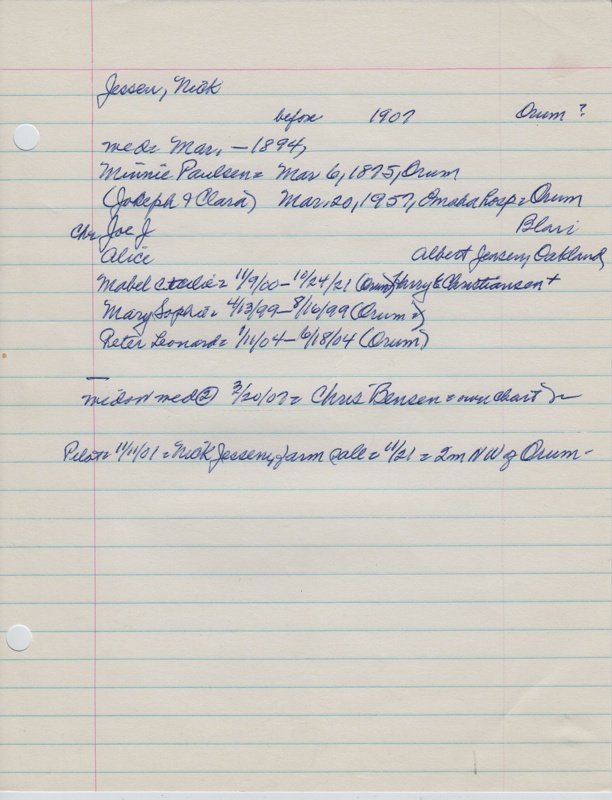 Jessen, Nick
before 1907 Orum ?
wed= Mar. - 1894,
Minnie Paulsen= Mar 6, 1875, Orum
(Joseph & Clara) Mar. 20, 1957, Omaha hosp = Orum
Chr Joe J Blair
Alice Albert Jensen, Oakland,
Mabel = 11/9/00 - 10/24/21 (Orum) Harry E Christiansen +
Mary Sophie = 4/13/99 - 8/16/99 (Orum =)
Peter Leonard = 1/11/04 - 6/18/04 (Orum)
widow wed ② 3/20/07 = Chris Bensen = own chart
Pilot = 11/11/01 = Nick Jessen, farm sale = 11/21 = 2m NW of Orum -